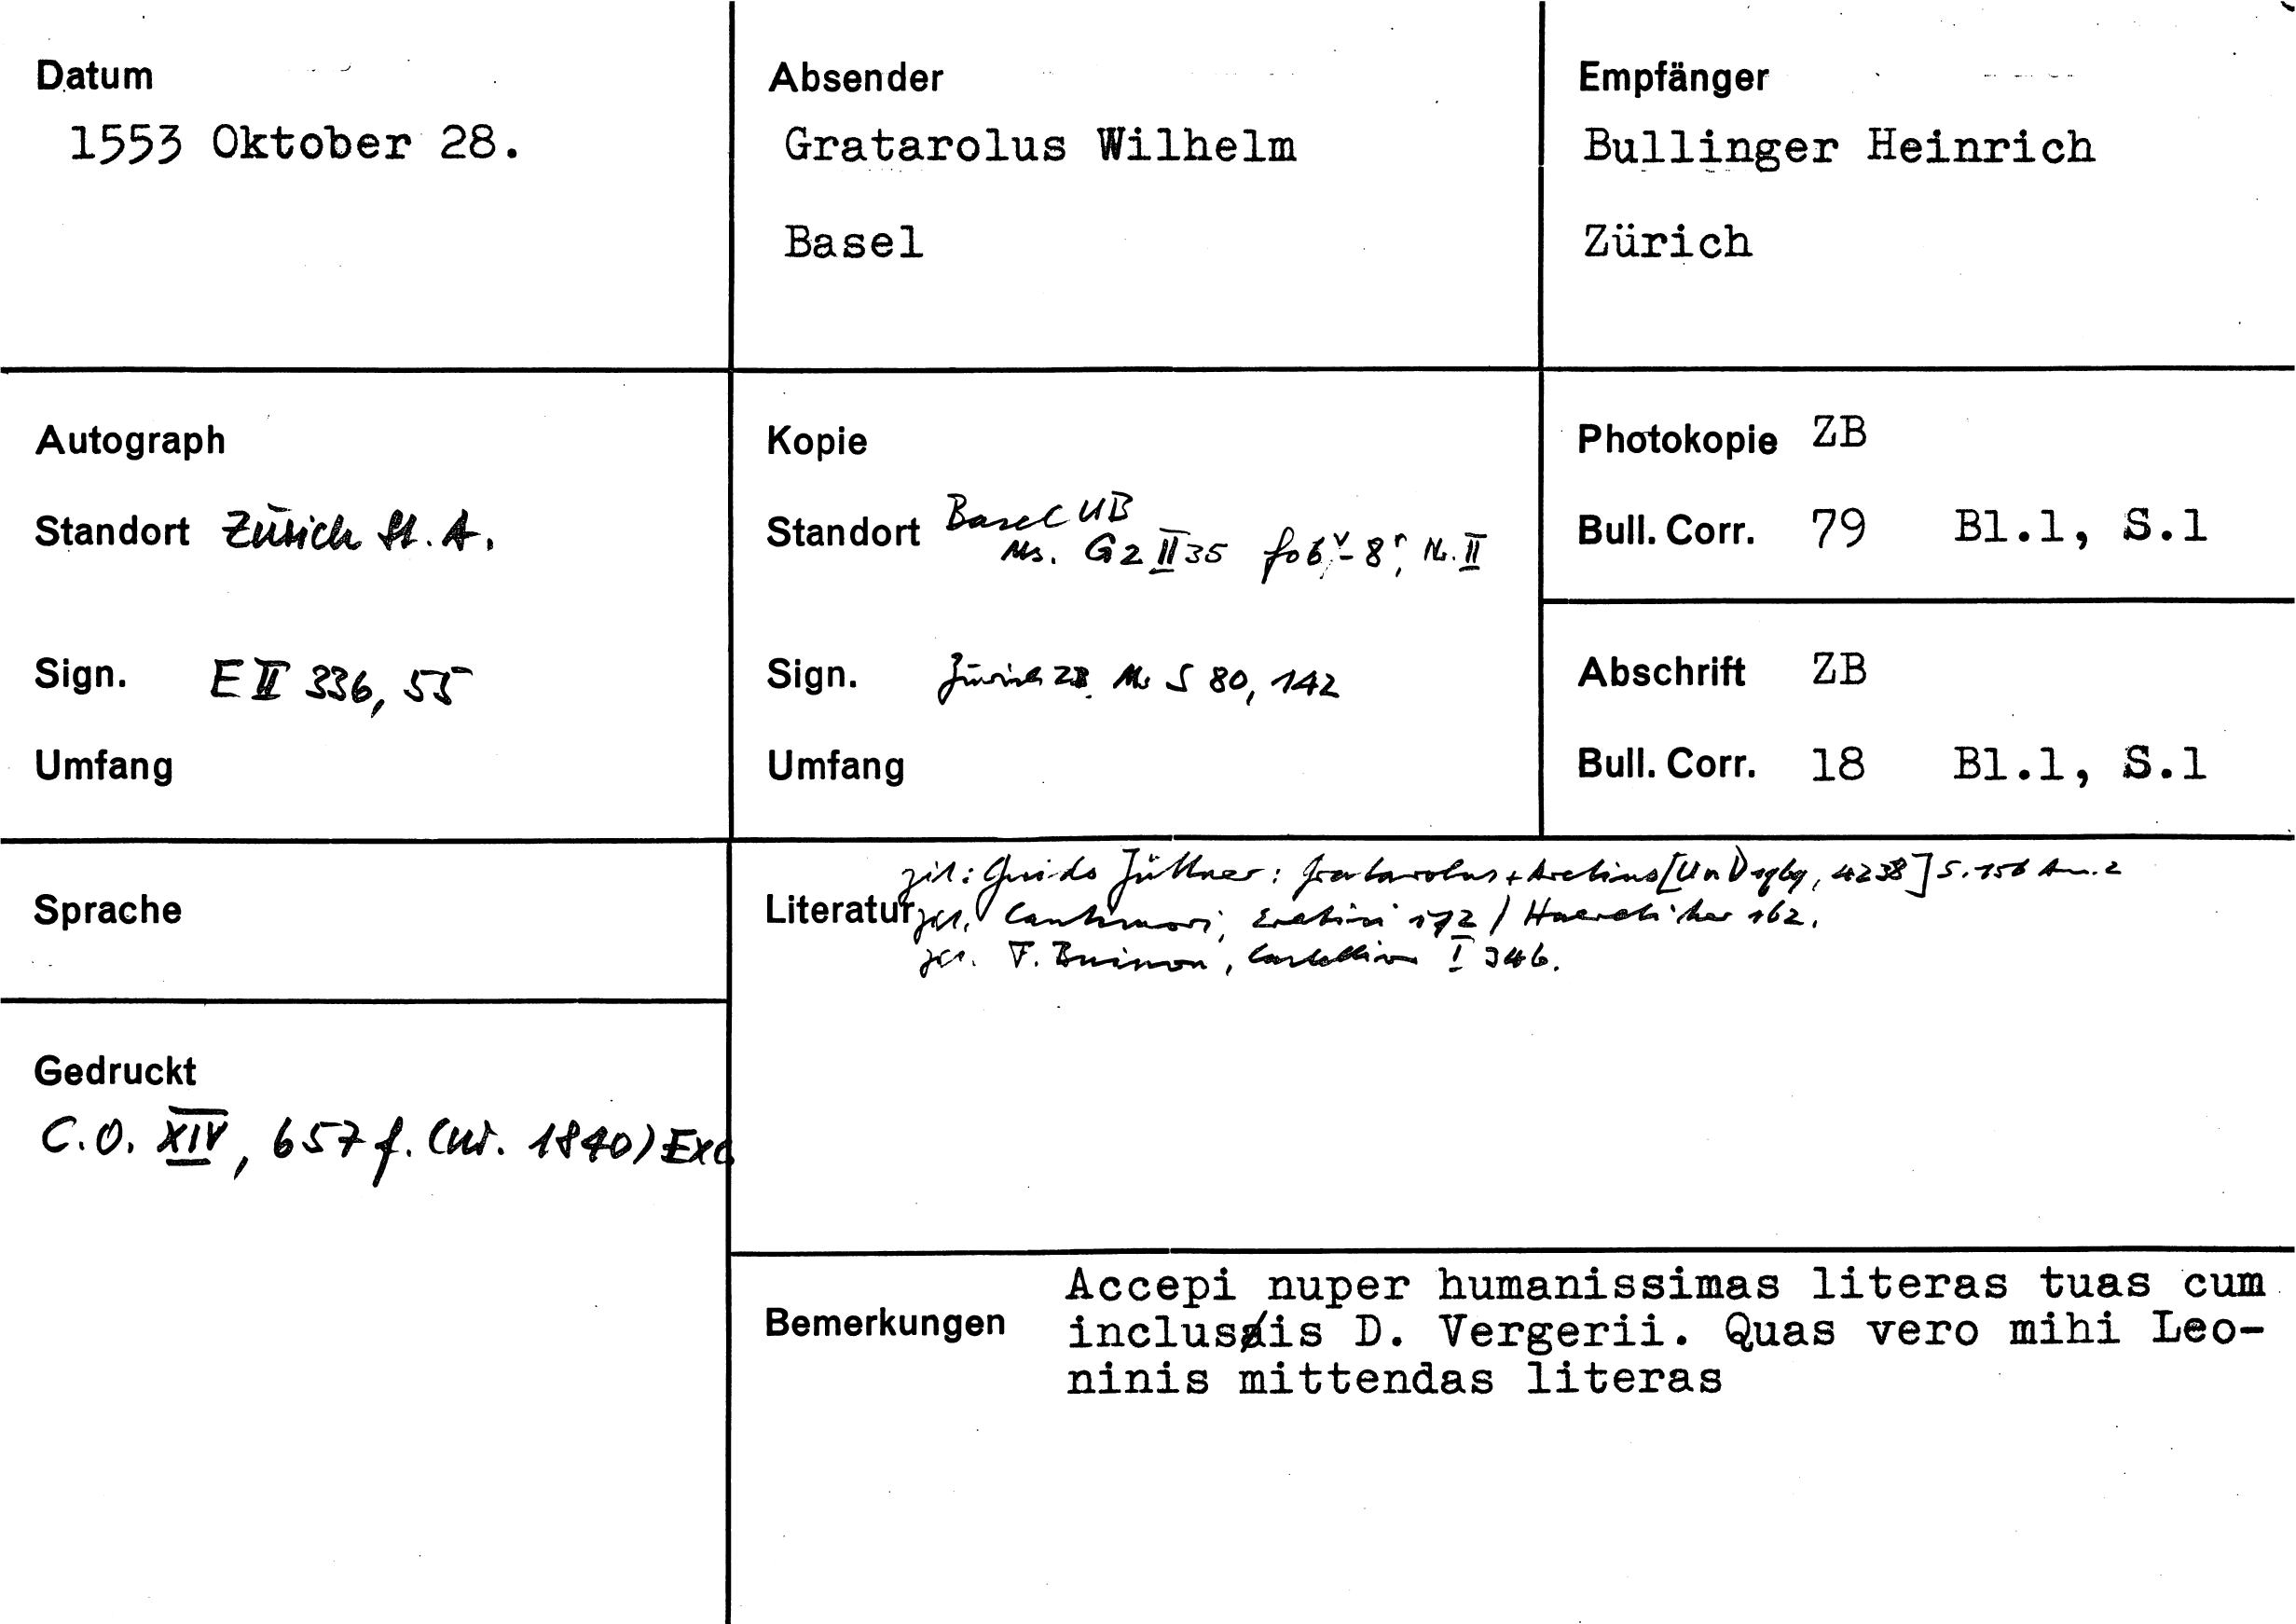 Datum
1553 Oktober 28.
Absender
Gratarolus Wilhelm
Basel
Empfänger
Bullinger Heinrich
Zürich
Autograph
Standort Zürich St. A.
Sign. E II 336, 55
Umfang
Kopie
Standort Basel UB
Ms. G2 II 35 fo 6v - 8r, Nr. II
Sign. Zürich ZB Ms S 80, 142
Umfang
Photokopie ZB
Bull. Corr. 79 Bl.1, S.1
Abschrift ZB
Bull. Corr. 18 Bl.1, S.1
Sprache
Gedruckt
C.O. XIV, 657 f. (Nr. 1840) Exc
zit: Guido Jüttner: Gratarolus + Aretius 4238] S. 156 Anm. 2
Literatur zit. Cantimori, Eretici 172 / Haeretiker 162.
zit. F. Buisson, Castellion I 346.
Bemerkungen
Accepi nuper humanissimas literas tuas cum
inclusis D. Vergerii. Quas vero mihi Leo-
ninis mittendas literas